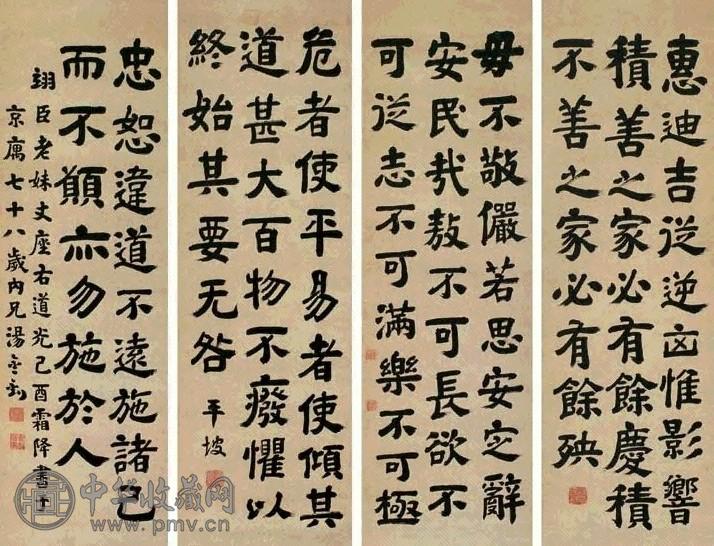 惠迪吉從逆凶惟影響
積善之家必有餘慶積
不善之家必有餘殃
毋不敬儼若思安定辭
安民哉敖不可長欲不
可從志不可滿樂不可極
危者使平易者使傾其
道甚大百物不癈懼以
終始其要无咎
平坡
忠恕違道不遠施諸己
而不願亦勿施於人
翊臣老妹丈座右道光己酉霜降書于
京寓七十八歲內兄湯金釗
中华收藏网
www.pmv.cn